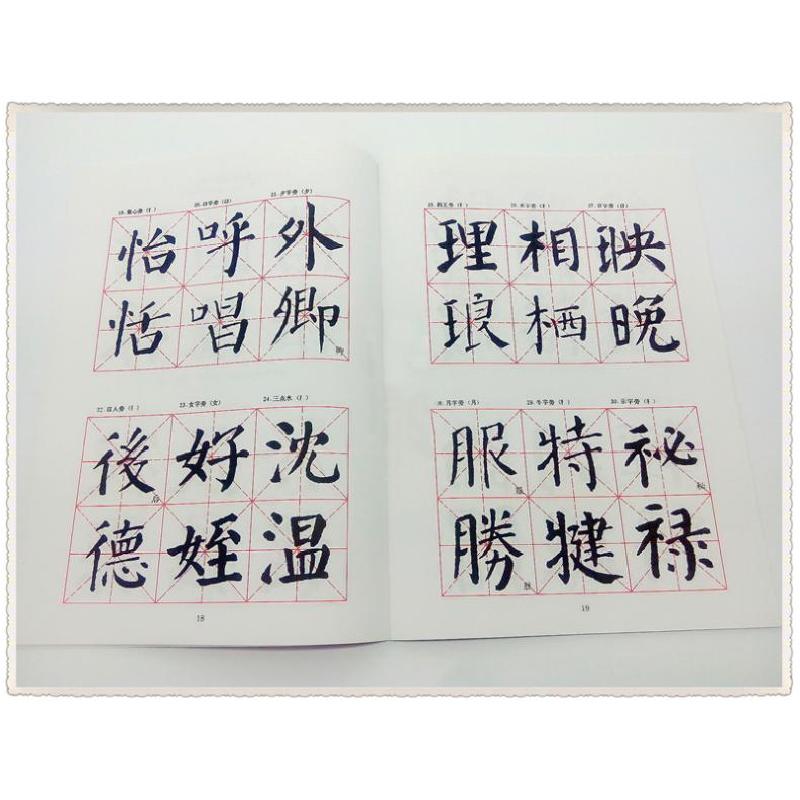 19.竖心旁（忄） 20.口字旁（口） 21.夕字旁（夕）
怡 呼 外
恬 唱 卿
22.双人旁（彳） 23.女字旁（女） 24.三点水（氵）
後 后 好 沈
德 姪 温
18
理 相 映
琅 栖 晚
月字旁（月） 29.牛字旁（牜） 30.示字旁（礻）
服 特 祕 秘
勝 胜 犍 禄
19